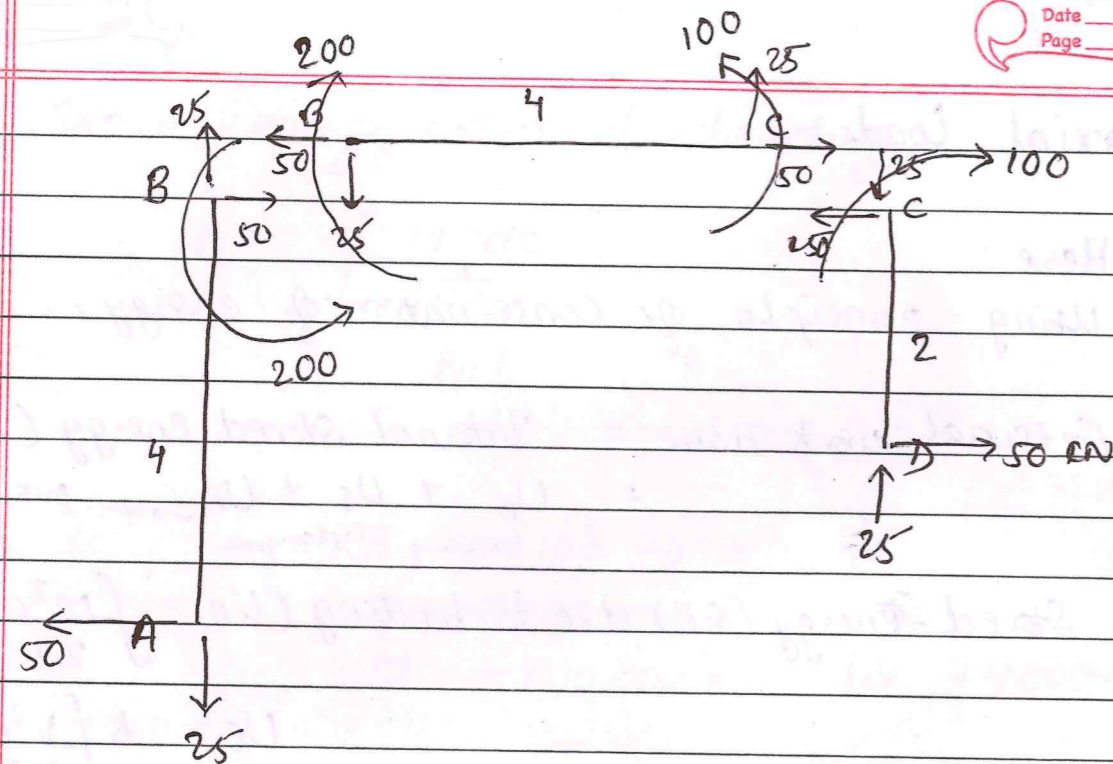 Date
Page
200
100
25
4
25
B
C
50
50
25
100
B
50
25
250
C
200
2
4
D
50 KN
25
50
A
25